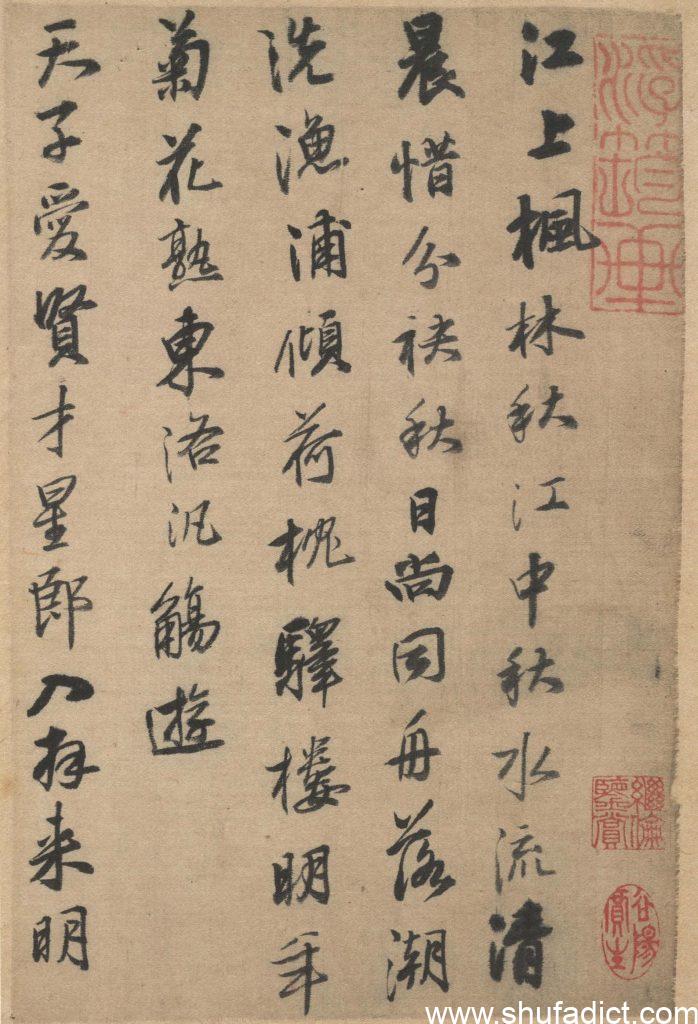 江上楓林秋江中秋水流清
晨惜分袂秋日尚同舟落潮
洗漁浦傾荷枕驛樓明年
菊花熟東洛汎觴遊
天子愛賢才星郎入拜來明
繼瀹鑒賞
www.shufadict.com